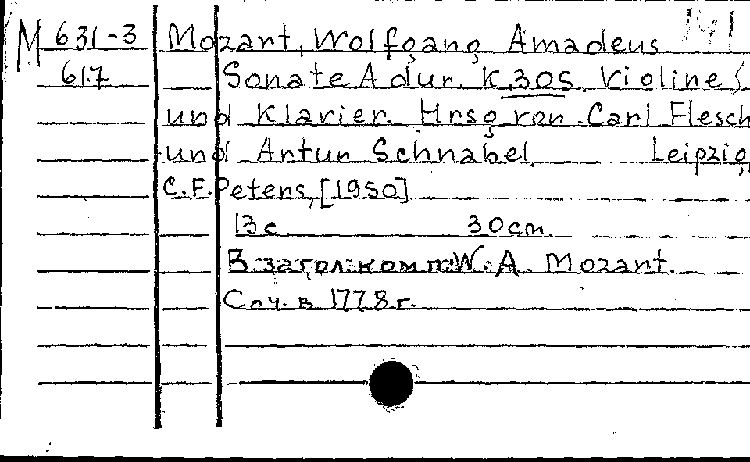 M 631-3 Mozart, Wolfgang Amadeus
617 Sonate A dur. K.305. Violine
und Klavier. Hrsg von Carl Flesch
und Artur Schnabel. Leipzig,
C.F.Peters, [1950]
13c 30cm.
В загол:комп:W.A. Mozart.
Соч. в 1778г.